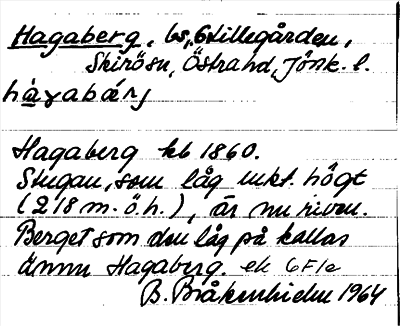 Hagaberg, ls, Stillegården,
Skirösn, Östrahd, Jönk. l.
hàɣabárj
Hagaberg kb 1860.
Stugan, som låg mkt. högt
(218 m. ö. h.), är nu riven.
Berget som den låg på kallas
ännu Hagaberg. ek 6F1e
B. Bråkenhielm 1964